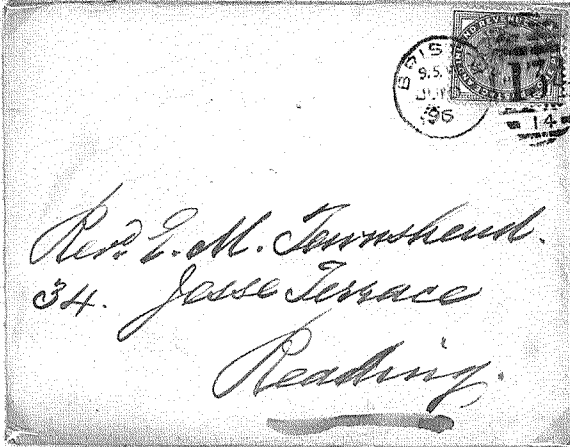 BRIS
9.5
JUN
96
14
Revd. E. M. Townshend.
34. Jesse Terrace
Reading.